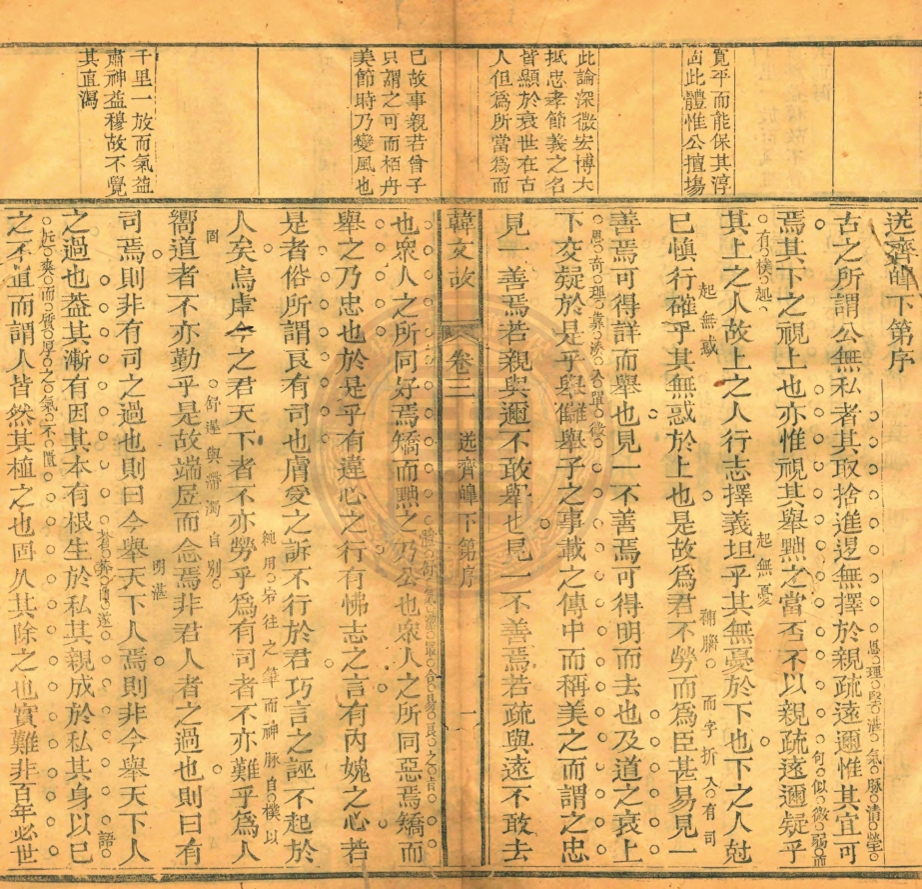 寬平而能保其淳
古此體惟公擅場
此論深微宏博大
抵忠孝節義之名
皆顯於衰世在古
人但爲所當爲而
已故事親若曾子
只謂之可而栢舟
美節時乃變風也
千里一放而氣益
肅神益穆故不覺
其直瀉
送齊皥下第序
古之所謂公無私者其取捨進退無擇於親疏遠邇惟其宜可
焉其下之視上也亦惟視其舉黜之當否不以親疏遠邇疑乎
其上之人故上之人行志擇義坦乎其無憂於下也下之人尅
己愼行確乎其無惑於上也是故爲君不勞而爲臣甚易見一
善焉可得詳而舉也見一不善焉可得明而去也及道之衰上
下交疑於是乎舉讎舉子之事載之傳中而稱美之而謂之忠
見一善焉若親與邇不敢舉也見一不善焉若疏與遠不敢去
韓文故
卷三
送齊皥下第序
一
也衆人之所同好焉矯而黜之乃公也衆人之所同惡焉矯而
舉之乃忠也於是乎有違心之行有怫志之言有內媿之心若
是者俗所謂良有司也膚受之訴不行於君巧言之誣不起於
人矣烏虖今之君天下者不亦勞乎爲有司者不亦難乎爲人
嚮道者不亦勤乎是故端居而念焉非君人者之過也則曰有
司焉則非有司之過也則曰今舉天下人焉則非今舉天下人
之過也蓋其漸有因其本有根生於私其親成於私其身以己
之不直而謂人皆然其植之也固久其除之也實難非百年必世
起無憂
起無惑